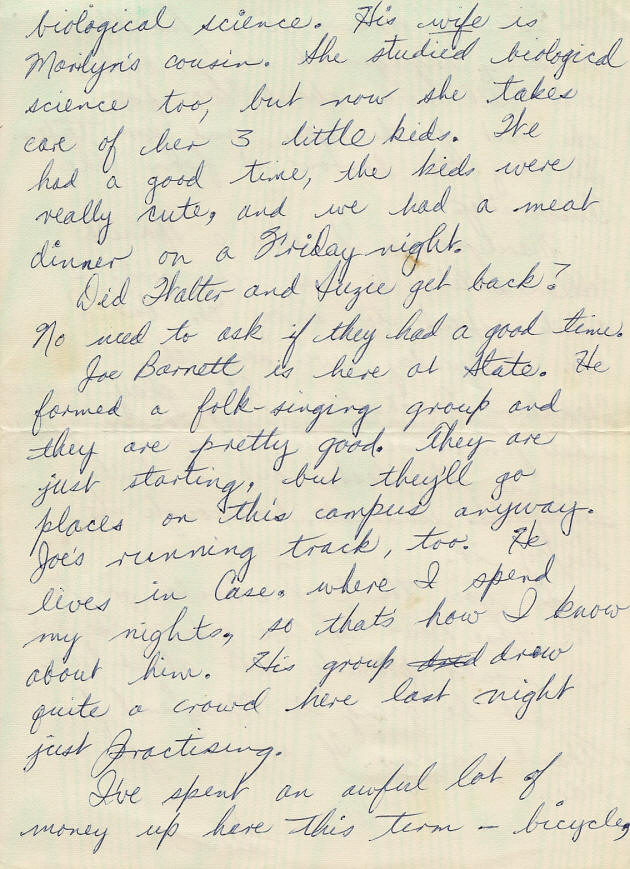 biological science. His wife is
Marilyn's cousin. She studied biological
science too, but now she takes
care of her 3 little kids. We
had a good time, the kids were
really cute, and we had a meat
dinner on a Friday night.
Did Walter and Suzie get back?
No need to ask if they had a good time.
Joe Barnett is here at State. He
formed a folk-singing group and
they are pretty good. They are
just starting, but they'll go
places on this campus anyway.
Joe's running track, too. He
lives in Case, where I spend
my nights, so that's how I know
about him. His group drew
quite a crowd here last night
just practising.
I've spent an awful lot of
money up here this term – bicycle,